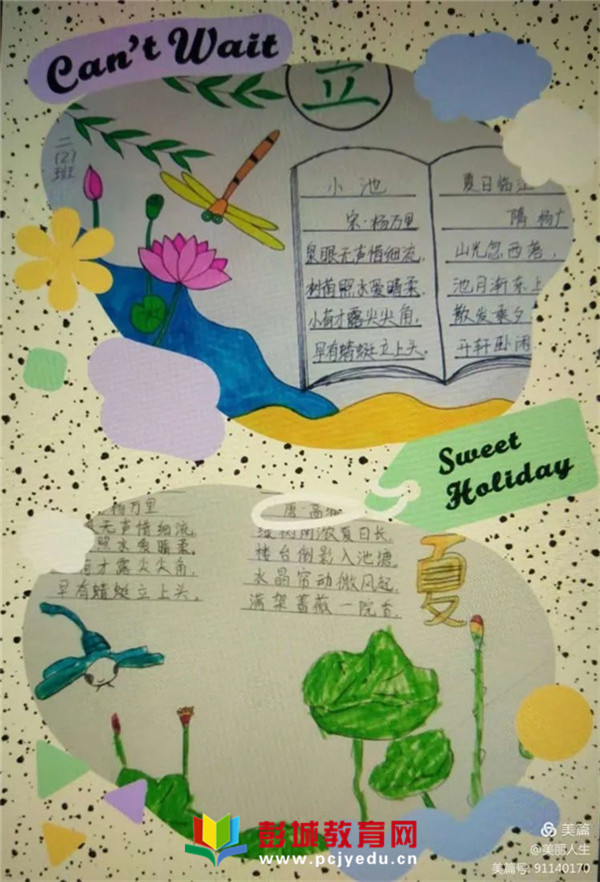 Can't Wait
立
二
(2)
班
小池
宋·杨万里
泉眼无声惜细流,
树荫照水爱晴柔.
小荷才露尖尖角,
早有蜻蜓立上头.
夏日临江
隋 杨广
山光忽西落,
池月渐东上
散发乘夕
开轩卧闲
Sweet
Holiday
杨万里
无声惜细流,
照水爱晴柔.
才露尖尖角,
早有蜻蜓立上头.
唐·高
树阴浓夏日长,
楼台倒影入池塘,
水晶帘动微风起,
满架蔷薇一院香.
夏
彭城教育网
www.pcjyedu.cn
美篇
@美丽人生
美篇号: 91140170